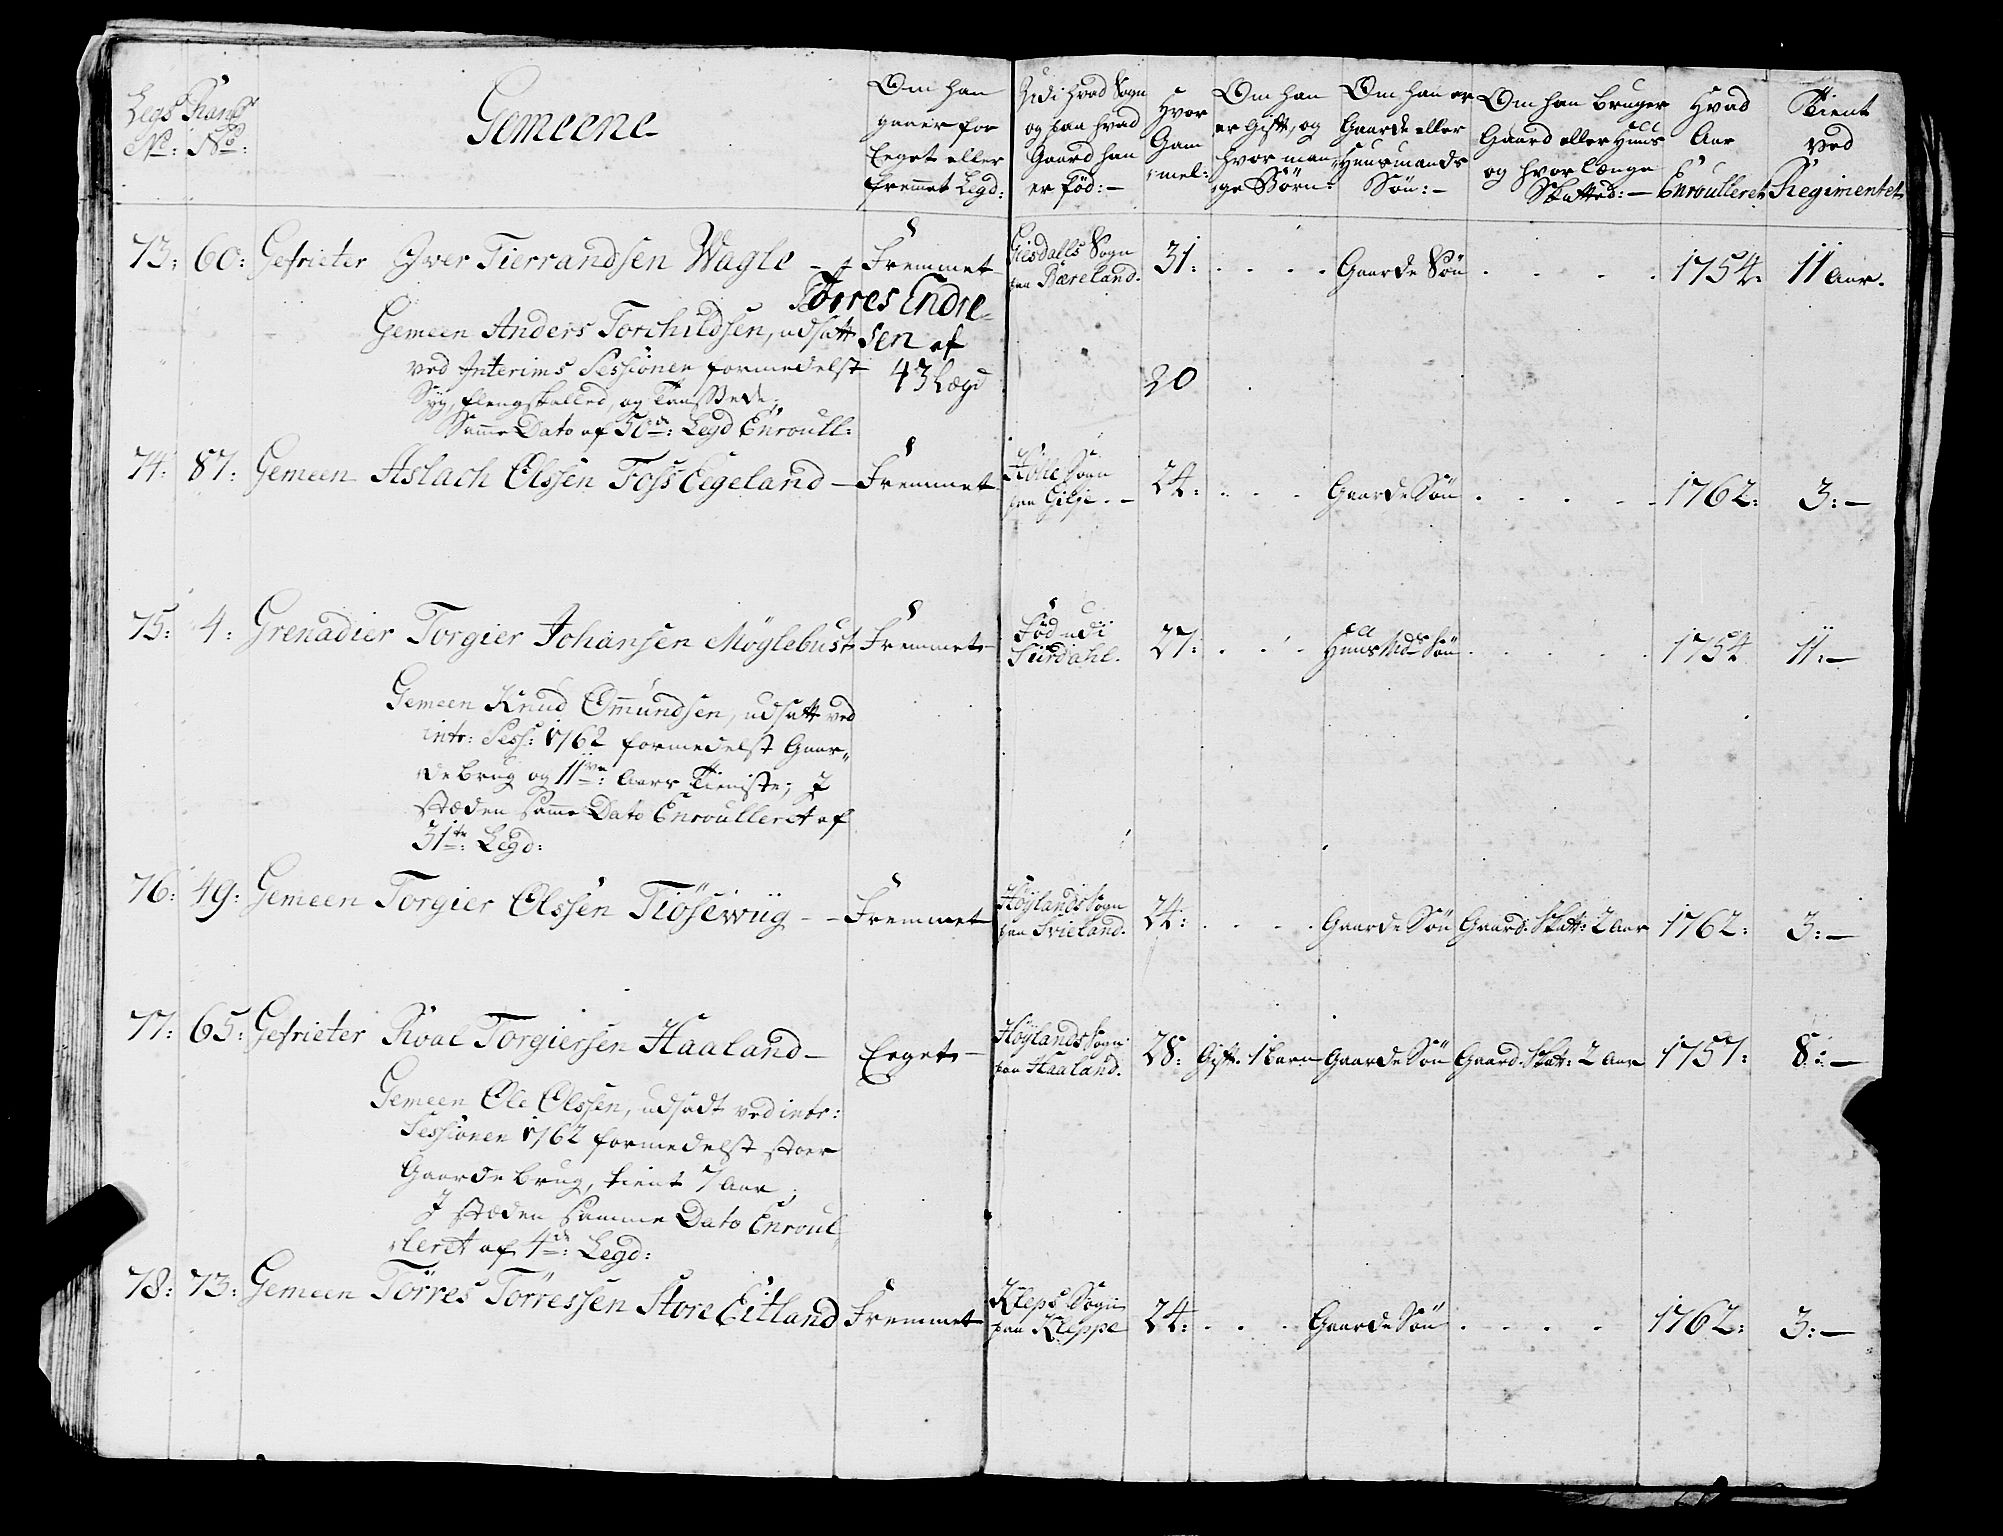 Legs No: Rang No:
Gemeene
Om han
gaaer for
Eeget eller
fremmet Legd:
Udi hvad Sogn
og paa hvad
Gaard han
er fød: —
Hvor
Gam
mel:
Om han
er Gift, og
hvor man,,
,,ge Børn:
Om han er
Gaarde eller
Huusmands
Søn: —
Om han bruger
Gaard eller Huus
og hvor længe
Skatted: —
Hvad
Aar
Enroulleret
Tient
ved
Regimentet
73: 60: Gefrieter Iver Tierrandsen Wagle — Fremmet Giesdalls Sogn paa Bæreland. 31: . . . . Gaarde Søn . . . . 1754: 11 Aar.
Tørres Endre-
sen af
43 Lægd
20
Gemeen Anders Torchildsen, udsatt
ved Interims Sessionen formedelst
Syg, flengskalled, og Tandløs;
Samme Dato af 50de: Legd Enroull:
74: 87: Gemeen Aslach Olssen Foss Eegeland — Fremmet Høle Sogn paa Gilje. — 24: . . . Gaarde Søn . . . . 1762: 3: —
75: 4: Grenadier Torgier Johansen Møglebust Fremmet — Fød udi Siirdahl. 27: . . . Huus Mds Søn . . . . 1754 11: —
Gemeen Knud Omundsen, udsatt ved
intr: Sess: 1762 formedelst Gaar,,
,,debrug og 11ve: Aars Tieniste; I
stæden samme Dato Enroulleret af
31te: Legd:
76: 49: Gemeen Torgier Olssen Tiøsewiig — Fremmet Høylands Sogn paa Svieland. 24: . . . . Gaarde Søn Gaard. Skatt: 2 Aar 1762: 3: —
77: 65: Gefrieter Roal Torgiersen Haaland — Eeget — Høylands Sogn paa Haaland. 28: Gift. 1 barn Gaarde Søn Gaard. Skatt: 2 Aar 1757: 8: —
Gemeen Ole Olssen, udsadt ved intr:
Sessionen 1762 formedelst stoer
Gaarde brug, tient 7 Aar;
I stæden samme Dato Enroul,,
,,leret af 4de: Legd:
78: 73: Gemeen Tørres Tørressen Store Eitland Fremmet Kleps Sogn paa Kleppe 24: . . . Gaarde Søn . . . . 1762: 3: —